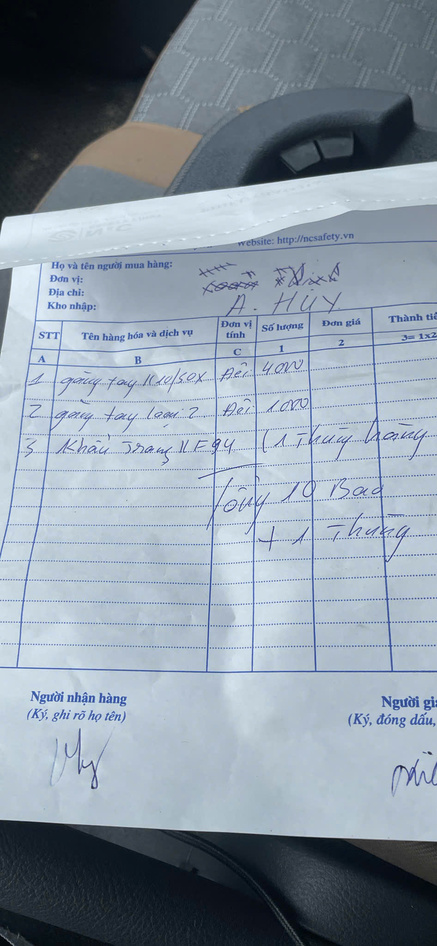 Website: http://ncsafety.vn
Họ và tên người mua hàng:
Đơn vị:
Địa chỉ:
Kho nhập: A. HUY
STT Tên hàng hóa và dịch vụ Đơn vị tính Số lượng Đơn giá Thành ti
A B C 1 2 3= 1x2
1 găng tay K10/50X Đôi 4000
2 găng tay loại 2 Đôi 1000
3 Khẩu Trang KF94 (1 Thùng hàng
Tổng 10 Bao
+ 1 Thùng
Người nhận hàng Người gi
(Ký, ghi rõ họ tên) (Ký, đóng dấu,